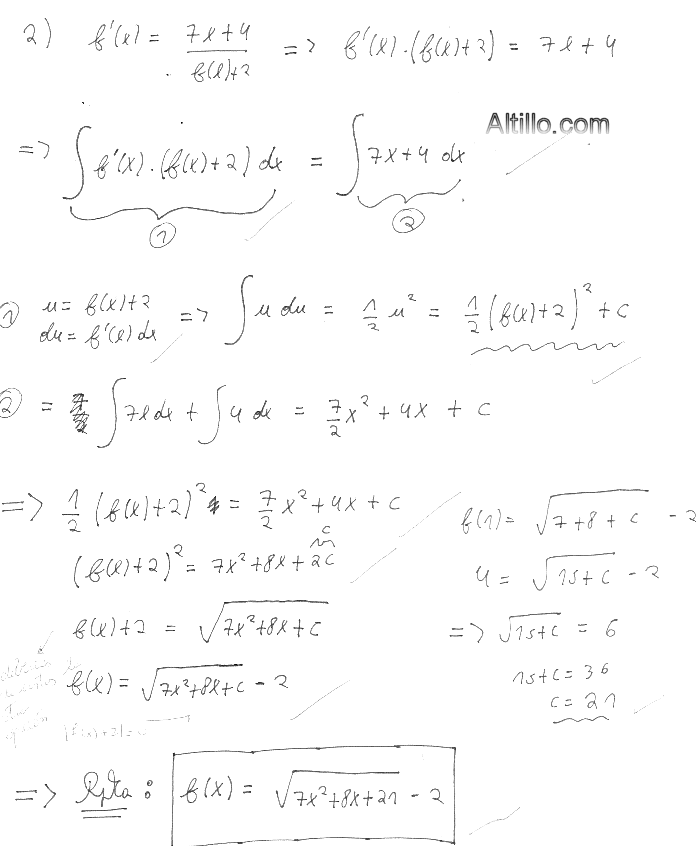 2) f'(x) = (7x+4)/(f(x)+2) => f'(x).(f(x)+2) = 7x+4
Altillo.com
=> ∫ f'(x).(f(x)+2) dx = ∫ 7x+4 dx
① ②
① u = f(x)+2 => ∫ u du = 1/2 u² = 1/2 (f(x)+2)² + C
du = f'(x) dx
② = ∫ 7x dx + ∫ 4 dx = 7/2 x² + 4x + C
=> 1/2 (f(x)+2)² = 7/2 x² + 4x + C
C
(f(x)+2)² = 7x²+8x+2C
f(x)+2 = √(7x²+8x+C)
f(x) = √(7x²+8x+C) - 2
f(1) = √(7+8+C) - 2
4 = √(15+C) - 2
=> √(15+C) = 6
15+C = 36
C = 21
=> Rpta: f(x) = √(7x²+8x+21) - 2